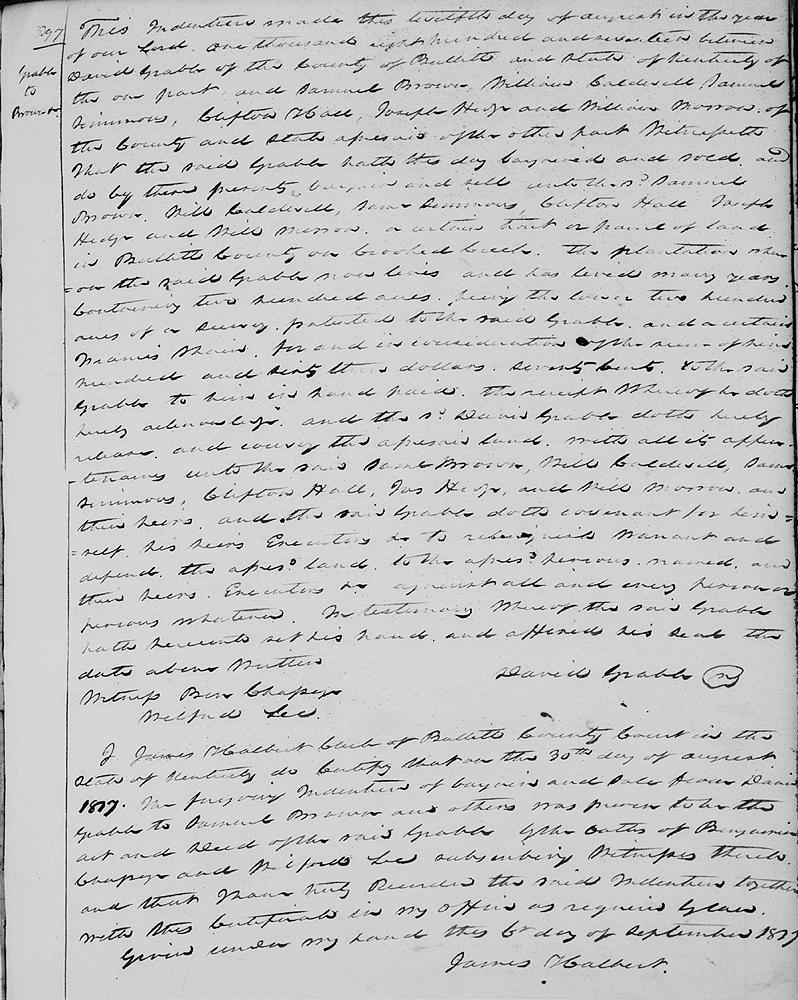 297
Grable
to
Brown &c.
This Indenture made this twelfth day of august in the year
of our Lord, one thousand eight hundred and seventeen between
David Grable of the County of Bullitt and State of Kentucky of
the one part, and Samuel Brown, William Caldwell, Samuel
Simmons, Clifton Hall, Joseph Hedge and William Morrow, of
the County and State aforesaid of the other part Witnesseth
That the said Grable hath this day bargained and sold, and
do by these presents, bargain and sell unto the sd. Samuel
Brown, Will Caldwell, Saml Simmons, Clifton Hall, Joseph
Hedge and Will Morrow, a certain tract or parcel of land
in Bullitt County on Crooked Creek, the plantation where
=on the said Grable now lives and has lived many years,
Containing two hundred acres, being the lower two hundred
acres of a Survey, patented to the said Grable, and a certain
for and in consideration of the sum of
hundred and sixty three dollars, seventy Cents, to the said
Grable to him in hand paid, the receipt Whereof he doth
hereby acknowledge, and the sd. David Grable doth hereby
release, and convey the aforesaid land, with all its appur-
-tenances unto the said Saml Brown, Will Caldwell, Saml
Simmons, Clifton Hall, Jos Hedge, and Will Morrow, and
their heirs, and the said Grable doth covenant for him=
=self, his heirs Executors &c to relinquish Warrant and
defend, the aforesd. land, to the aforesd. persons, named, and
their heirs, Executors &c against all and every person or
persons whatever. In testimony Whereof the said Grable
hath hereunto set his hand, and affixed his seal the
date above Written
David Grable
Witness Ben Chapeze
Wilford Lee.
I James Halbert Clerk of Bullitt County Court in the
State of Kentucky do Certify that on the 30th day of august
1817. The foregoing Indenture of bargain and Sale from David
Grable to Samuel Brown and others was proven to be the
act and deed of the said Grable by the Oaths of Benjamin
Chapeze and Wilford Lee subscribing Witnesses thereto
and that I have truly Recorded the said Indenture together
with this Certificate in my office as required by law.
Given under my hand this 6th day of September 1817
James Halbert.